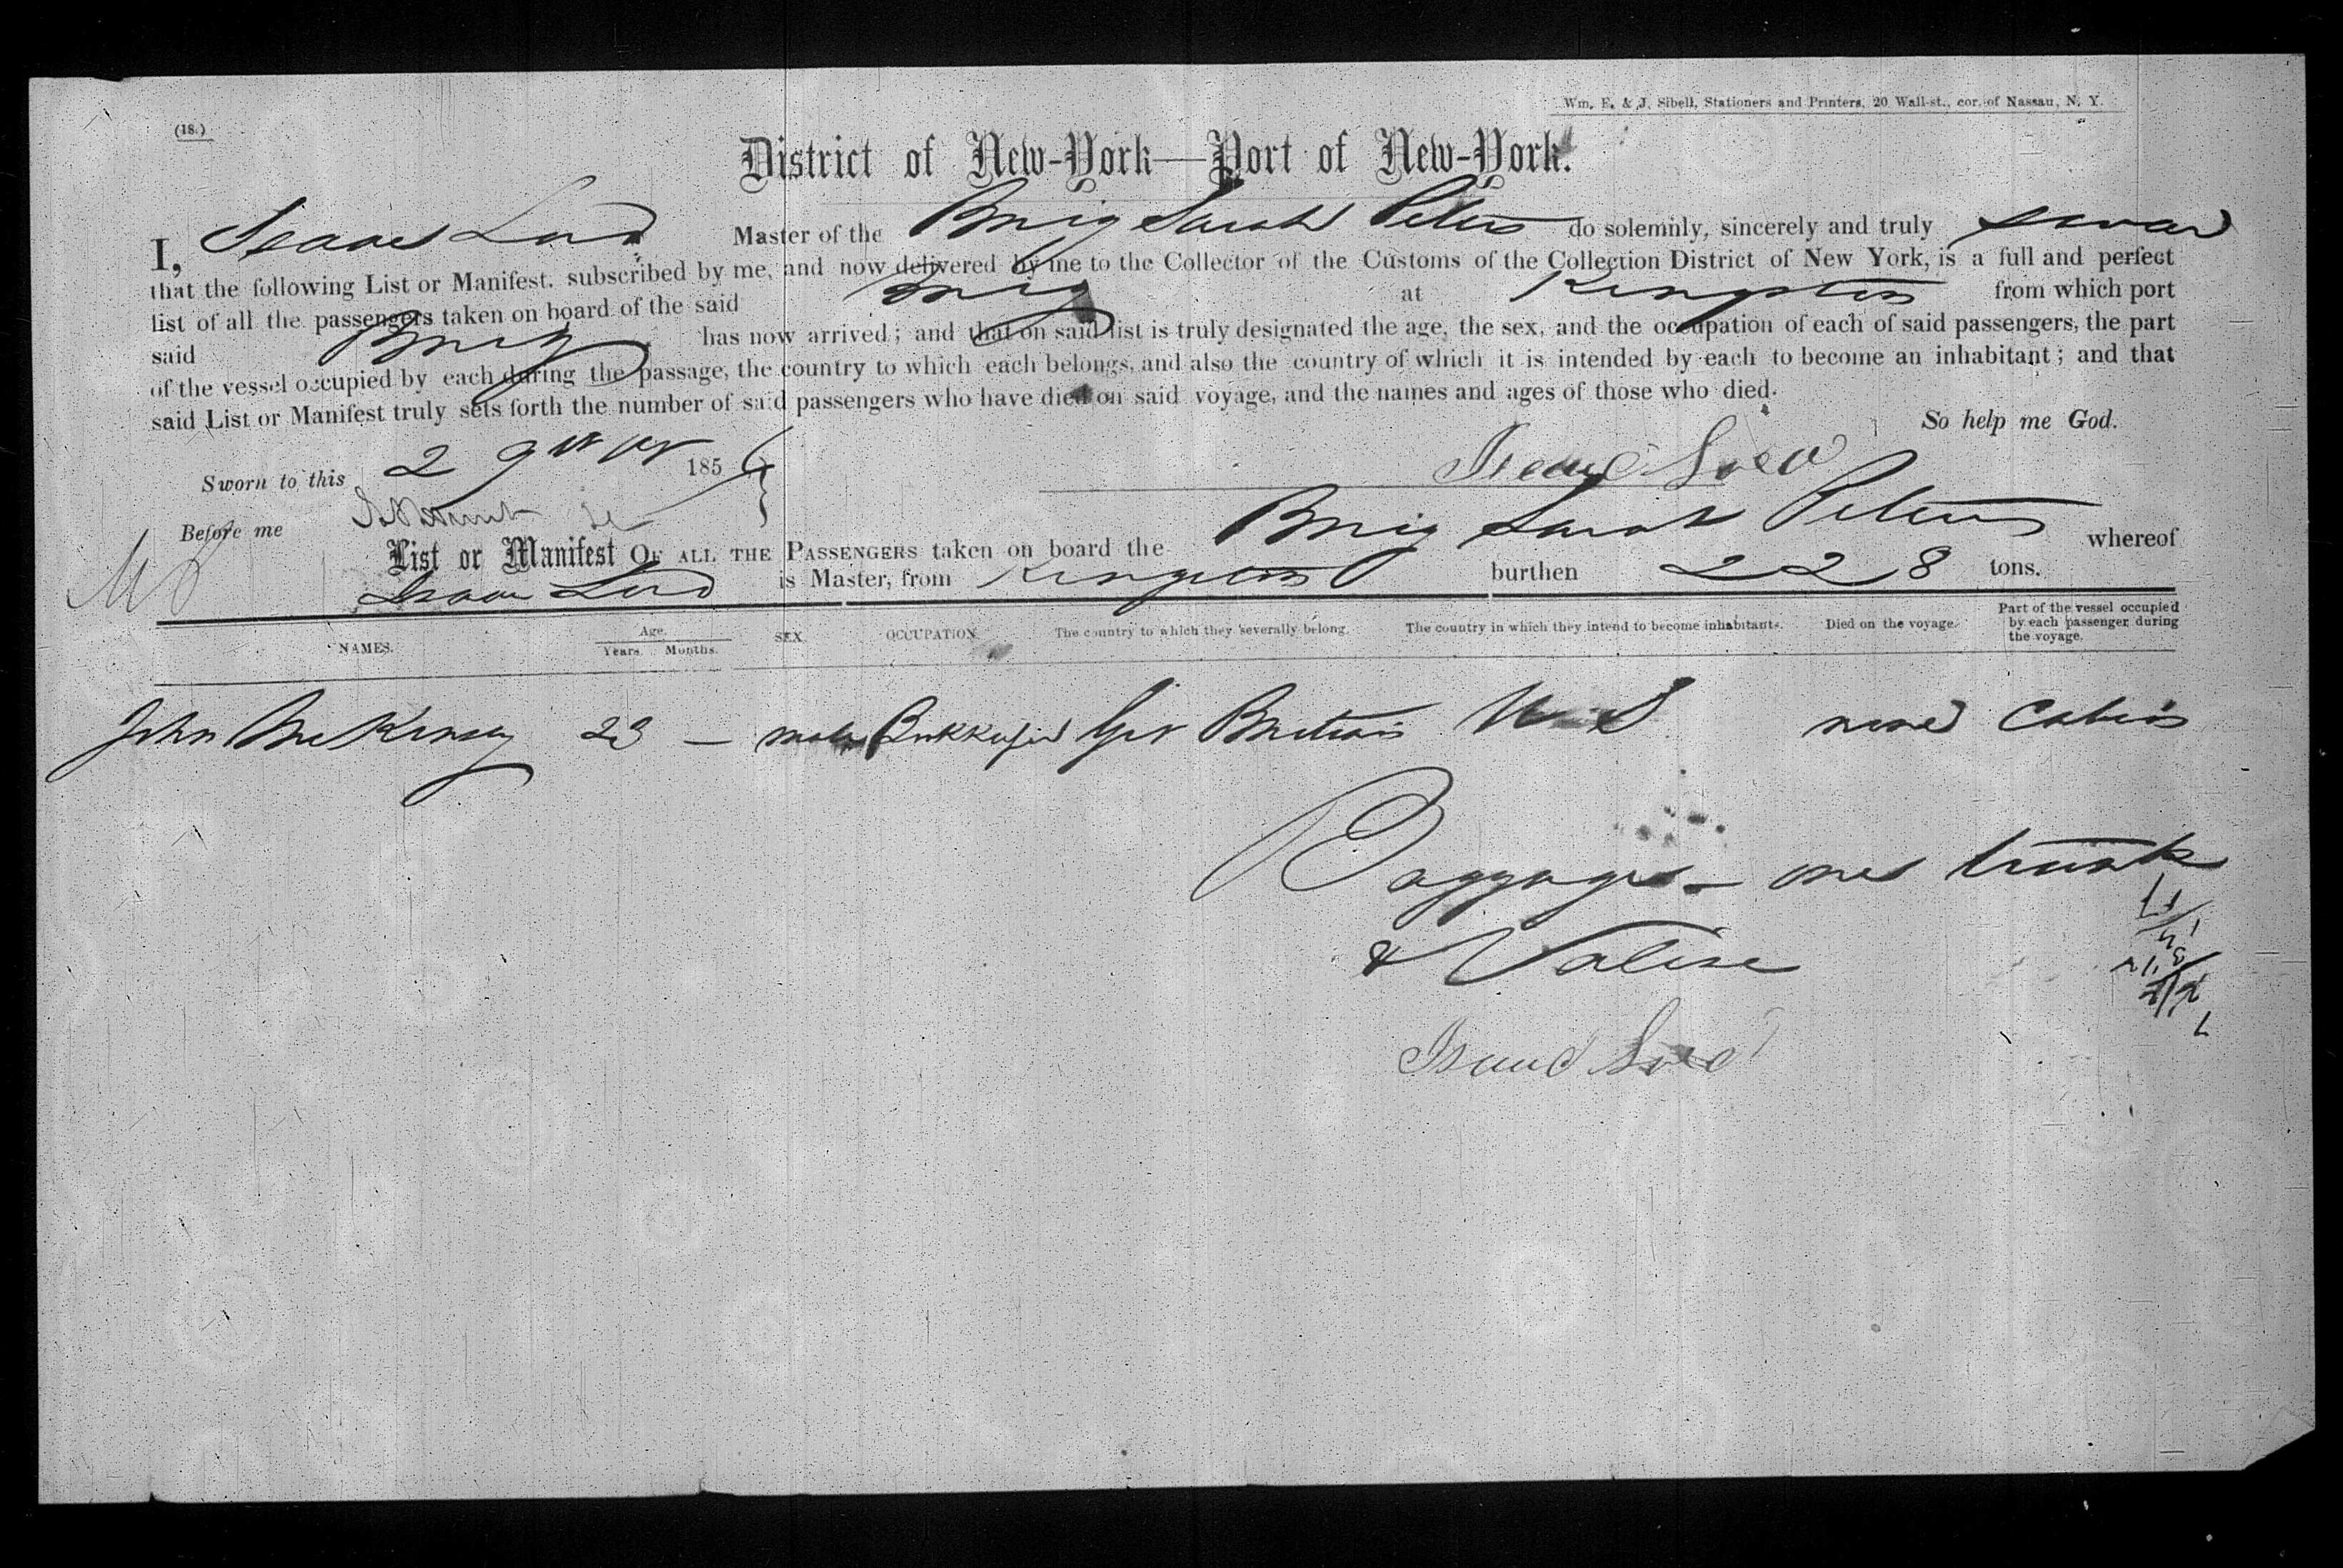 (18.)
Wm. E. & J. Sibell, Stationers and Printers, 20 Wall-st., cor. of Nassau, N. Y.
District of New-York—Port of New-York.
I, Isaac Lord Master of the Brig Sarah Peters do solemnly, sincerely and truly swear
that the following List or Manifest. subscribed by me, and now delivered by me to the Collector of the Customs of the Collection District of New York, is a full and perfect
list of all the passengers taken on board of the said Brig at Kingston from which port
said Brig has now arrived; and that on said list is truly designated the age, the sex, and the occupation of each of said passengers, the part
of the vessel occupied by each during the passage, the country to which each belongs, and also the country of which it is intended by each to become an inhabitant; and that
said List or Manifest truly sets forth the number of said passengers who have died on said voyage, and the names and ages of those who died.
So help me God.
Sworn to this 29 1856
Isaac Lord
Before me
List or Manifest OF ALL THE PASSENGERS taken on board the Brig Sarah Peters whereof
Isaac Lord is Master, from Kingston burthen 228 tons.
NAMES. Age. Years. Months. SEX. OCCUPATION. The country to which they severally belong. The country in which they intend to become inhabitants. Died on the voyage. Part of the vessel occupied by each passenger during the voyage.
John McKinsey 23 — male Bukkeeper Gr Britain U S none Cabin
Baggage - one trunk
& Valise
Isaac Lord